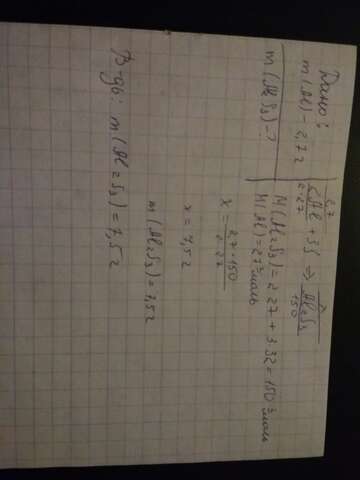 Дано:
m(Al) - 2,7 г
m(Al₂S₃) - ?
2,7 x
2Al + 3S ⇒ Al₂S₃
2·27 150
M(Al₂S₃) = 2·27 + 3·32 = 150 г/моль
M(Al) = 27 г/моль
x = 2,7·150 / 2·27
x = 7,5 г
m(Al₂S₃) = 7,5 г
В-дь: m(Al₂S₃) = 7,5 г